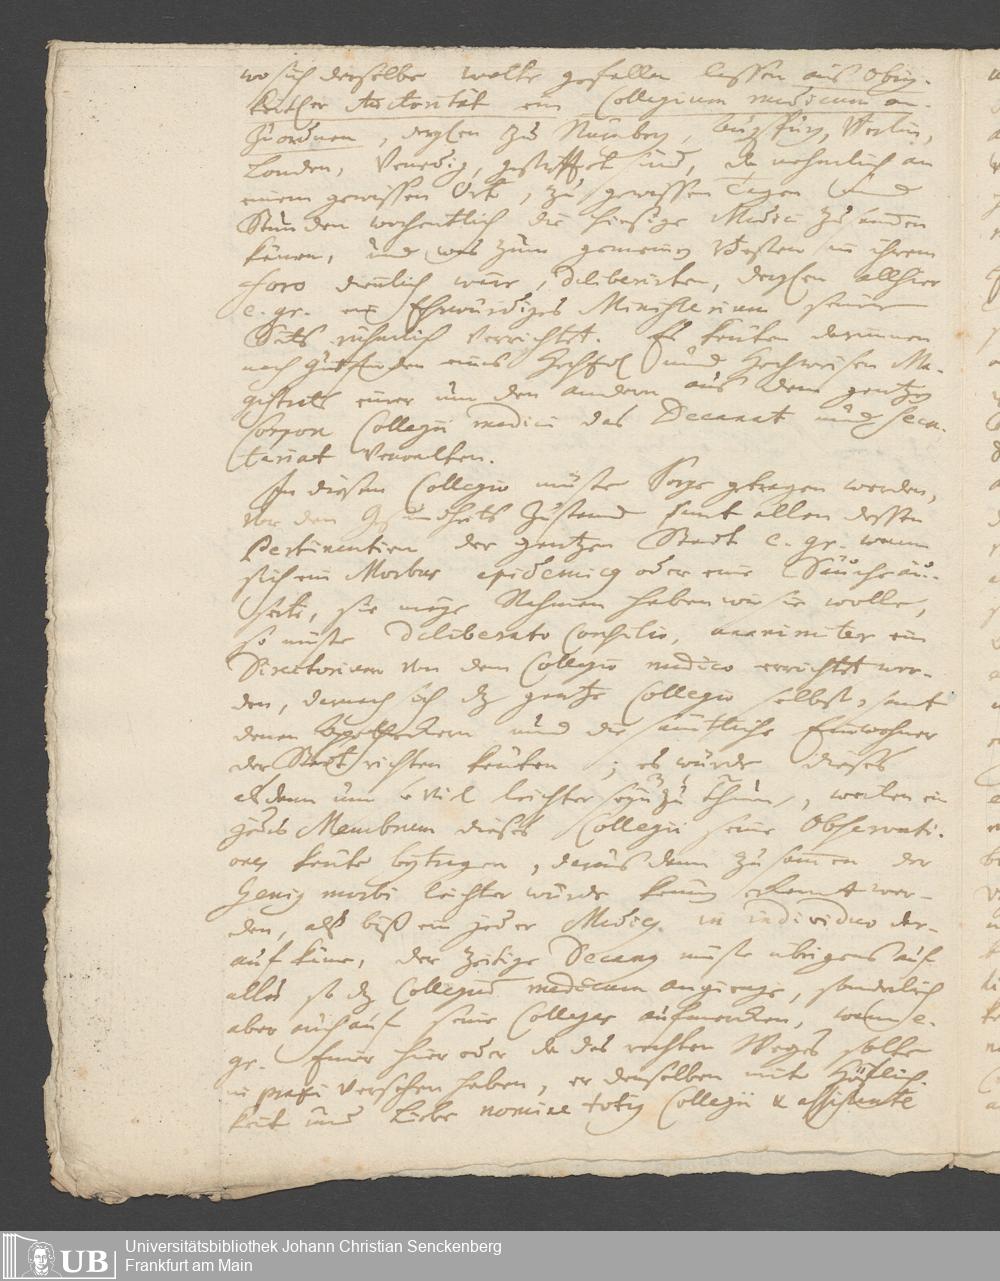 wo sich derselbe wolte gefallen lassen aus Obrig-
keitlr Autorität ein Collegium medicum an-
zuordnen, derglen zu Nürnberg, Augspurg, Berlin,
Londen, Venedig, gestifftet sind, da nehmlich an
einem gewissen Ort, zu gewissen Tagen und
Stunden wochentlich die hiesige Medici zusammen
kämen, und was zum gemeinen Besten in ihrem
foro dienlich wär, deliberirten, derglen allhier
e. gr. ein Ehrwürdiges Ministerium seiner
Seits rühmlich verrichtet. Es könten darinnen
nach Gutfinden eines HochEdl und Hochweisen Ma-
gistrats einer um den andern aus dem gantzen
Corpore Collegii medici das Decanat und Secre-
tariat verwalten.
In diesem Collegio müste Sorge getragen werden,
vor den Gesundheits Zustand samt allen dessen
Pertinentien der gantzen Stadt e. gr. wann
sich ein Morbus epidemicus oder eine Seuche äu-
serte, sie möge Nahmen haben wie sie wolle,
so müste deliberato Consilio, unanimiter ein
Directorium von dem Collegio medico errichtet wer-
den, darnach sich dz gantze Collegio selbst, samt
denen Apotheckern und die sämtliche Einwohner
der Stadt richten könten; es würde dieses
alsdann um so viel leichter seyn zu thun, weilen ein
jedes Membrum dieses Collegii seine Observati-
ones könte beytragen, daraus dann zusammen der
Genius morbi leichter würde können erkannt wer-
den, als biß ein jeder Medicus in individuo dar-
auf käme, der zeitige Decanus müste übrigens auf
alles so dz Collegium medicum angienge, sonderlich
aber auch auf seine Collegas aufmercken, wann e.
gr. Einer hier oder da des rechten Weges solte
in praxi verfehlen haben, er denselben mit Höflich-
keit und Liebe nomine totius Collegii & assistente
Universitätsbibliothek Johann Christian Senckenberg
Frankfurt am Main
UB